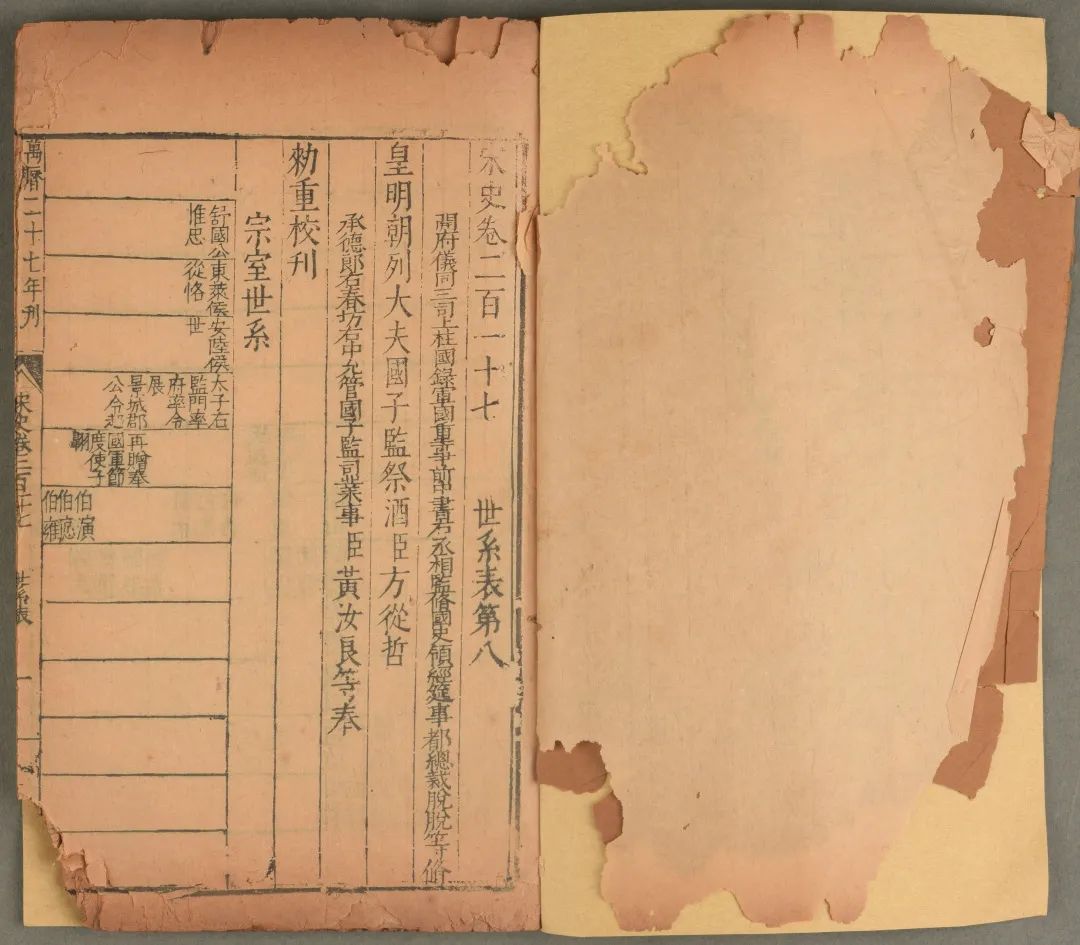 宋史卷二百一十七 世系表第八
開府儀同三司上柱國錄軍國重事前中書右丞相監修國史領經筵事都總裁脫脫等修
皇明朝列大夫國子監祭酒臣方從哲
承德郎右春坊右中允管國子監司業事臣黃汝良等奉
勑重校刊
宗室世系
舒國公東萊侯安陸侯太子右
惟忠 從恪 世 監門率
府率令
展
景城郡再贈奉
公令赴國軍節
度使子
翽
伯演
伯
伯雍
萬曆二十七年刊
宋史卷二百十七
世系表
一